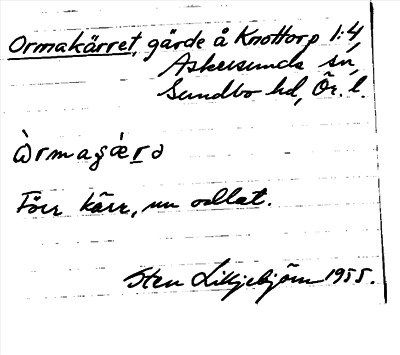 Ormakärret, gärde å Knottorp 1:4
Askersunds sn,
Sundbo hd, Ör. l.
Förr kärr, nu odlat.
Sten Liljebjörn 1955.